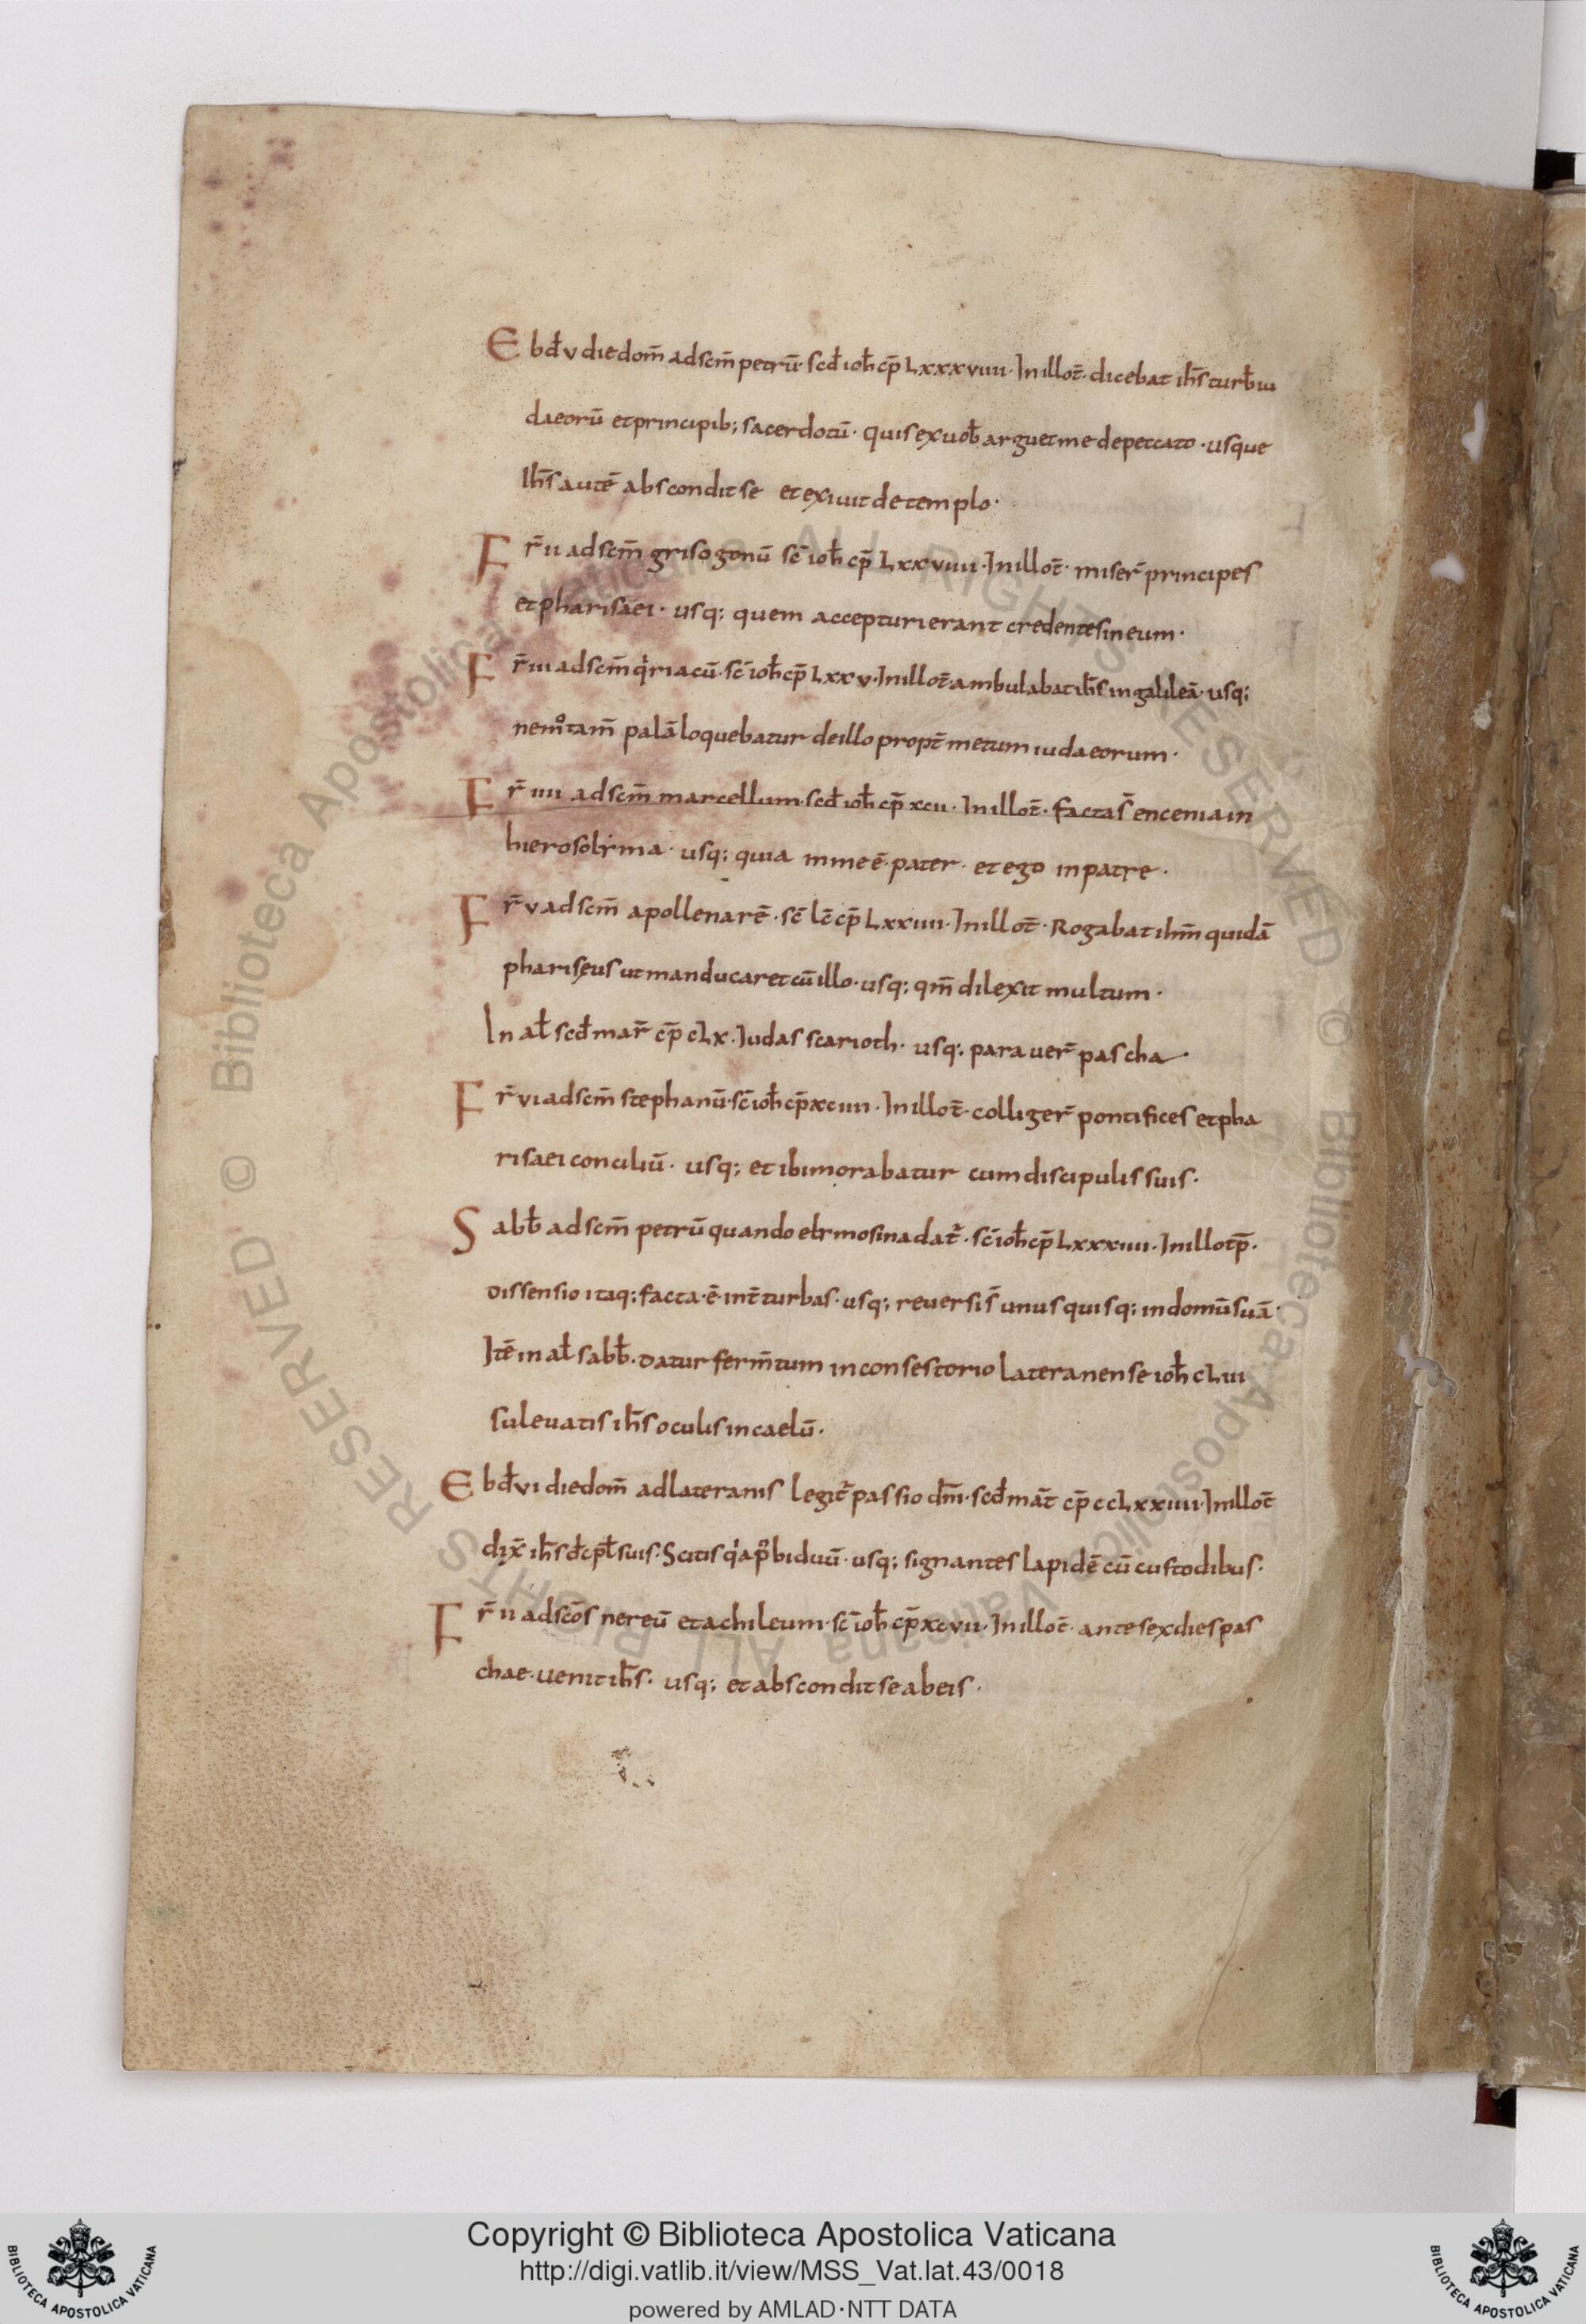 Ebđ v die dom̄ ad scm̄ petrū· scđ ioh̄ cp̄ Lxxxviiii· In illo t̄· dicebat ih̄s turƀ iu
daeorū et principib; sacerdotū· quis ex uoƀ arguet me de peccato· usque
Ih̄s autē abscondit se et exiuit de templo·
Fr̄ ii ad scm̄ grisogonū sc̄ ioh̄ cp̄ Lxxviiii· In illo t̄· miser̄ principes
et pharisaei· usq; quem accepturi erant credentes in eum·
Fr̄ iii ad scm̄ qiriacū· sc̄ ioh̄ cp̄ Lxxv· In illo t̄ ambulabat ih̄s in galileā· usq;
nemo tam̄ palā loquebatur de illo propt̄ metum iudaeorum·
Fr̄ iiii ad scm̄ marcellum· scđ ioh̄ cp̄ xcii· In illo t̄· facta s̄ encenia in
hierosolyma· usq; quia in me ē pater· et ego in patre·
Fr̄ v ad scm̄ apollenarē· sc̄ lc̄ cp̄ Lxxiiii· In illo t̄· Rogabat ihm̄ quidā
phariseus ut manducaret cū illo· usq; qm̄ dilexit multum·
In aƚ scđ mar̄ cp̄ cLx· Iudas scarioth· usq; parauer̄ pascha·
Fr̄ vi ad scm̄ stephanū· sc̄ ioh̄ cp̄ xciiii· In illo t̄· colliger̄ pontifices et pha
risaei conciliū· usq; et ibi morabatur cum discipulis suis·
Sabƀ ad scm̄ petrū quando elymosina dat̄· sc̄ ioh̄ cp̄ Lxxxiiii· In illo tp̄·
dissensio itaq; facta·ē· int̄ turbas· usq; reuersi s̄ unusquisq; in domū suā·
Itē in aƚ sabƀ· datur ferm̄tum in consestorio lateranense ioh̄ cLvi
suleuatis ih̄s oculis in caelū·
Ebđ vi die dom̄ ad lateranis legit̄ passio dm̄i· scđ māt cp̄ ccLxxiiii· In illo t̄
dix̄ ih̄s đcpƚ suis· Scitis qa po biduū· usq; signantes lapidē cū custodibus·
Fr̄ ii ad scōs nereū et achileum· sc̄ ioh̄ cp̄ xcvii· In illo t̄· ante sex dies pas
chae· uenit ih̄s· usq; et abscondit se ab eis·
Copyright © Biblioteca Apostolica Vaticana
http://digi.vatlib.it/view/MSS_Vat.lat.43/0018
powered by AMLAD·NTT DATA